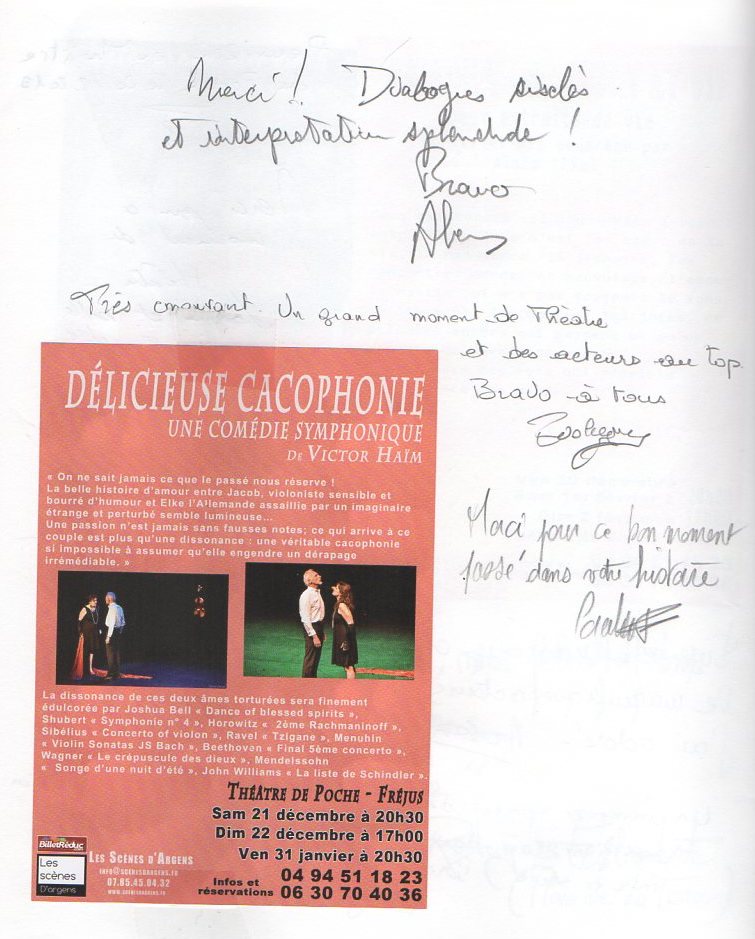 Merci ! Dialogues ciselés
et interprétation splendide !
Bravo
Très émouvant. Un grand moment de Théâtre
et des acteurs au top
Bravo à tous
Merci pour ce bon moment
passé dans votre histoire
DÉLICIEUSE CACOPHONIE
UNE COMÉDIE SYMPHONIQUE
DE VICTOR HAÏM
« On ne sait jamais ce que le passé nous réserve !
La belle histoire d'amour entre Jacob, violoniste sensible et
bourré d'humour et Elke l'Allemande assaillie par un imaginaire
étrange et perturbé semble lumineuse...
Une passion n'est jamais sans fausses notes; ce qui arrive à ce
couple est plus qu'une dissonance : une véritable cacophonie
si impossible à assumer qu'elle engendre un dérapage
irrémédiable. »
La dissonance de ces deux âmes torturées sera finement
édulcorée par Joshua Bell « Dance of blessed spirits »,
Shubert « Symphonie n° 4 », Horowitz « 2ème Rachmaninoff »,
Sibélius « Concerto of violon », Ravel « Tzigane », Menuhin
« Violin Sonatas JS Bach », Beethoven « Final 5ème concerto »,
Wagner « Le crépuscule des dieux », Mendelssohn
« Songe d'une nuit d'été », John Williams « La liste de Schindler ».
THÉÂTRE DE POCHE - FRÉJUS
Sam 21 décembre à 20h30
Dim 22 décembre à 17h00
Ven 31 janvier à 20h30
BilletRéduc.com
Les
scènes
D'argens
LES SCÈNES D'ARGENS
INFO@SCENESDARGENS.FR
07.85.45.04.32
WWW.SCENESDARGENS.FR
Infos et
réservations
04 94 51 18 23
06 30 70 40 36